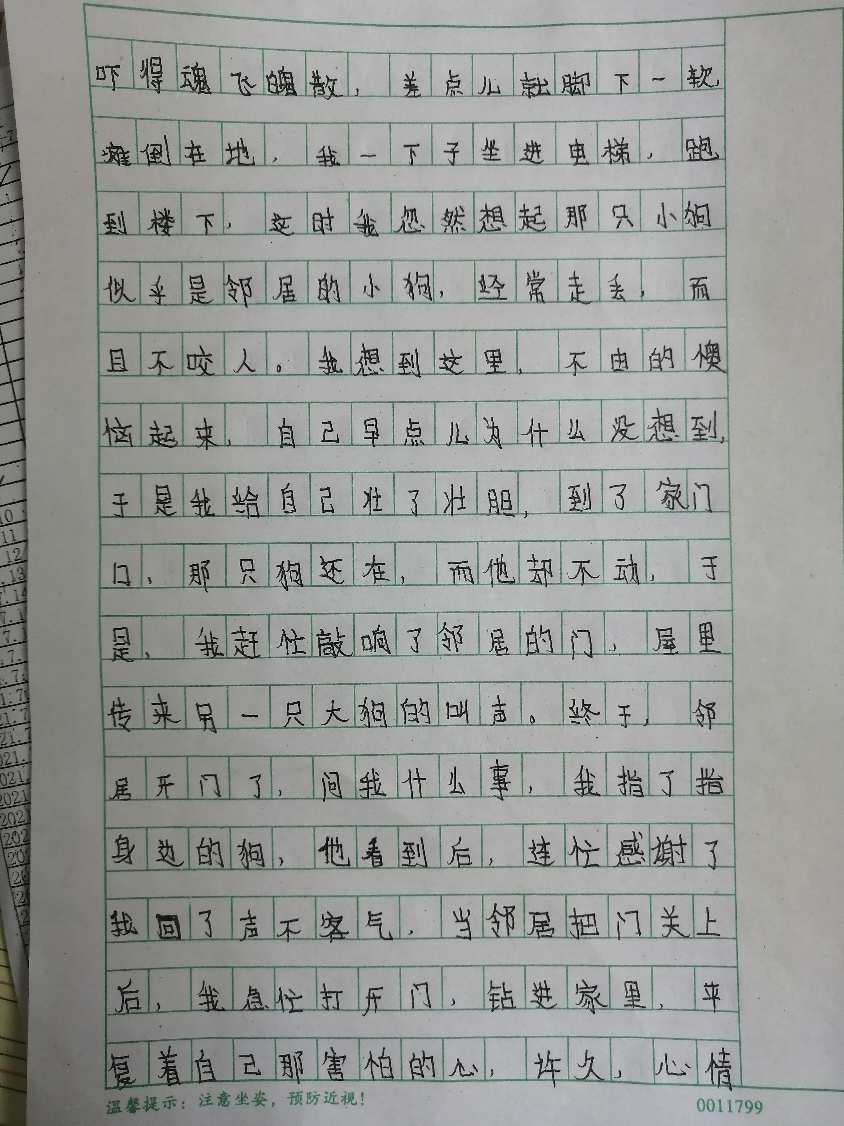 吓得魂飞魄散，差点儿就脚下一软，
滩倒在地，我一下子坐进电梯，跑
到楼下，这时我忽然想起那只小狗
似乎是邻居的小狗，经常走丢，而
且不咬人。我想到这里，不由的懊
恼起来，自己早点儿为什么没想到，
于是我给自己壮了壮胆，到了家门
口，那只狗还在，而他却不动，于
是，我赶忙敲响了邻居的门，屋里
传来另一只大狗的叫声。终于，邻
居开门了，问我什么事，我指了指
身边的狗，他看到后，连忙感谢了
我回了声不客气，当邻居把门关上
后，我急忙打开门，钻进家里，平
复着自己那害怕的心，许久，心情
温馨提示：注意坐姿，预防近视！ 0011799
10
11
12
2021
2021
202